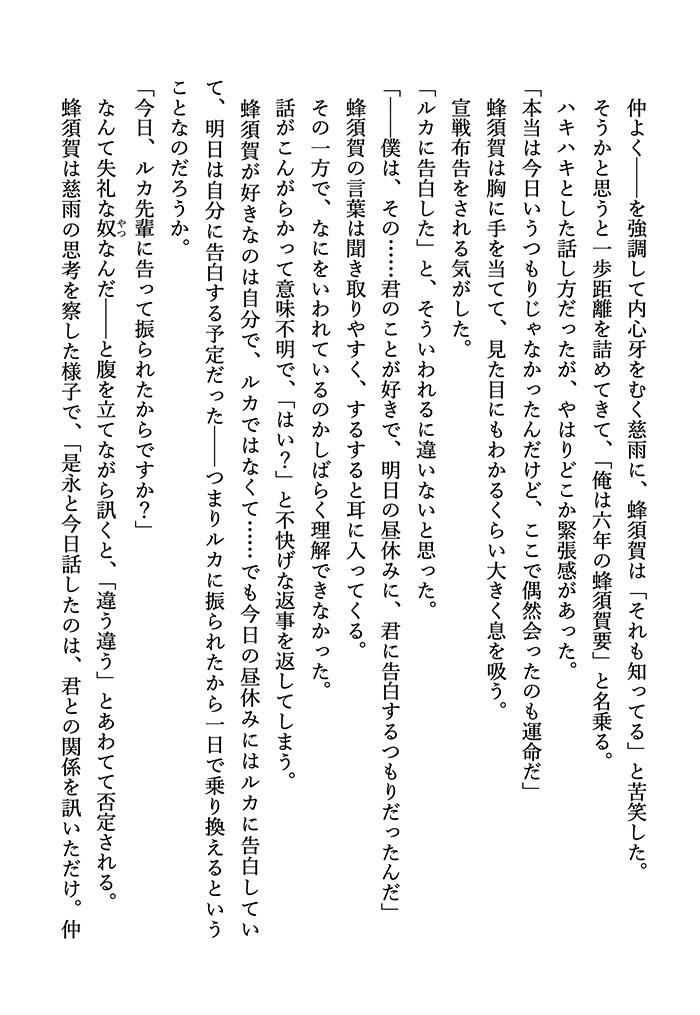 仲よく――を強調して内心牙をむく慈雨に、蜂須賀は「それも知ってる」と苦笑した。
そうかと思うと一歩距離を詰めてきて、「俺は六年の蜂須賀要」と名乗る。
ハキハキとした話し方だったが、やはりどこか緊張感があった。
「本当は今日いうつもりじゃなかったんだけど、ここで偶然会ったのも運命だ」
蜂須賀は胸に手を当てて、見た目にもわかるくらい大きく息を吸う。
宣戦布告をされる気がした。
「ルカに告白した」と、そういわれるに違いないと思った。
「――僕は、その……君のことが好きで、明日の昼休みに、君に告白するつもりだったんだ」
蜂須賀の言葉は聞き取りやすく、するすると耳に入ってくる。
その一方で、なにをいわれているのかしばらく理解できなかった。
話がこんがらかって意味不明で、「はい？」と不快げな返事を返してしまう。
蜂須賀が好きなのは自分で、ルカではなくて……でも今日の昼休みにはルカに告白してい
て、明日は自分に告白する予定だった――つまりルカに振られたから一日で乗り換えるという
ことなのだろうか。
「今日、ルカ先輩に告って振られたからですか？」
なんて失礼な奴なんだ――と腹を立てながら訊くと、「違う違う」とあわてて否定される。
やつ
蜂須賀は慈雨の思考を察した様子で、「是永と今日話したのは、君との関係を訊いただけ。仲